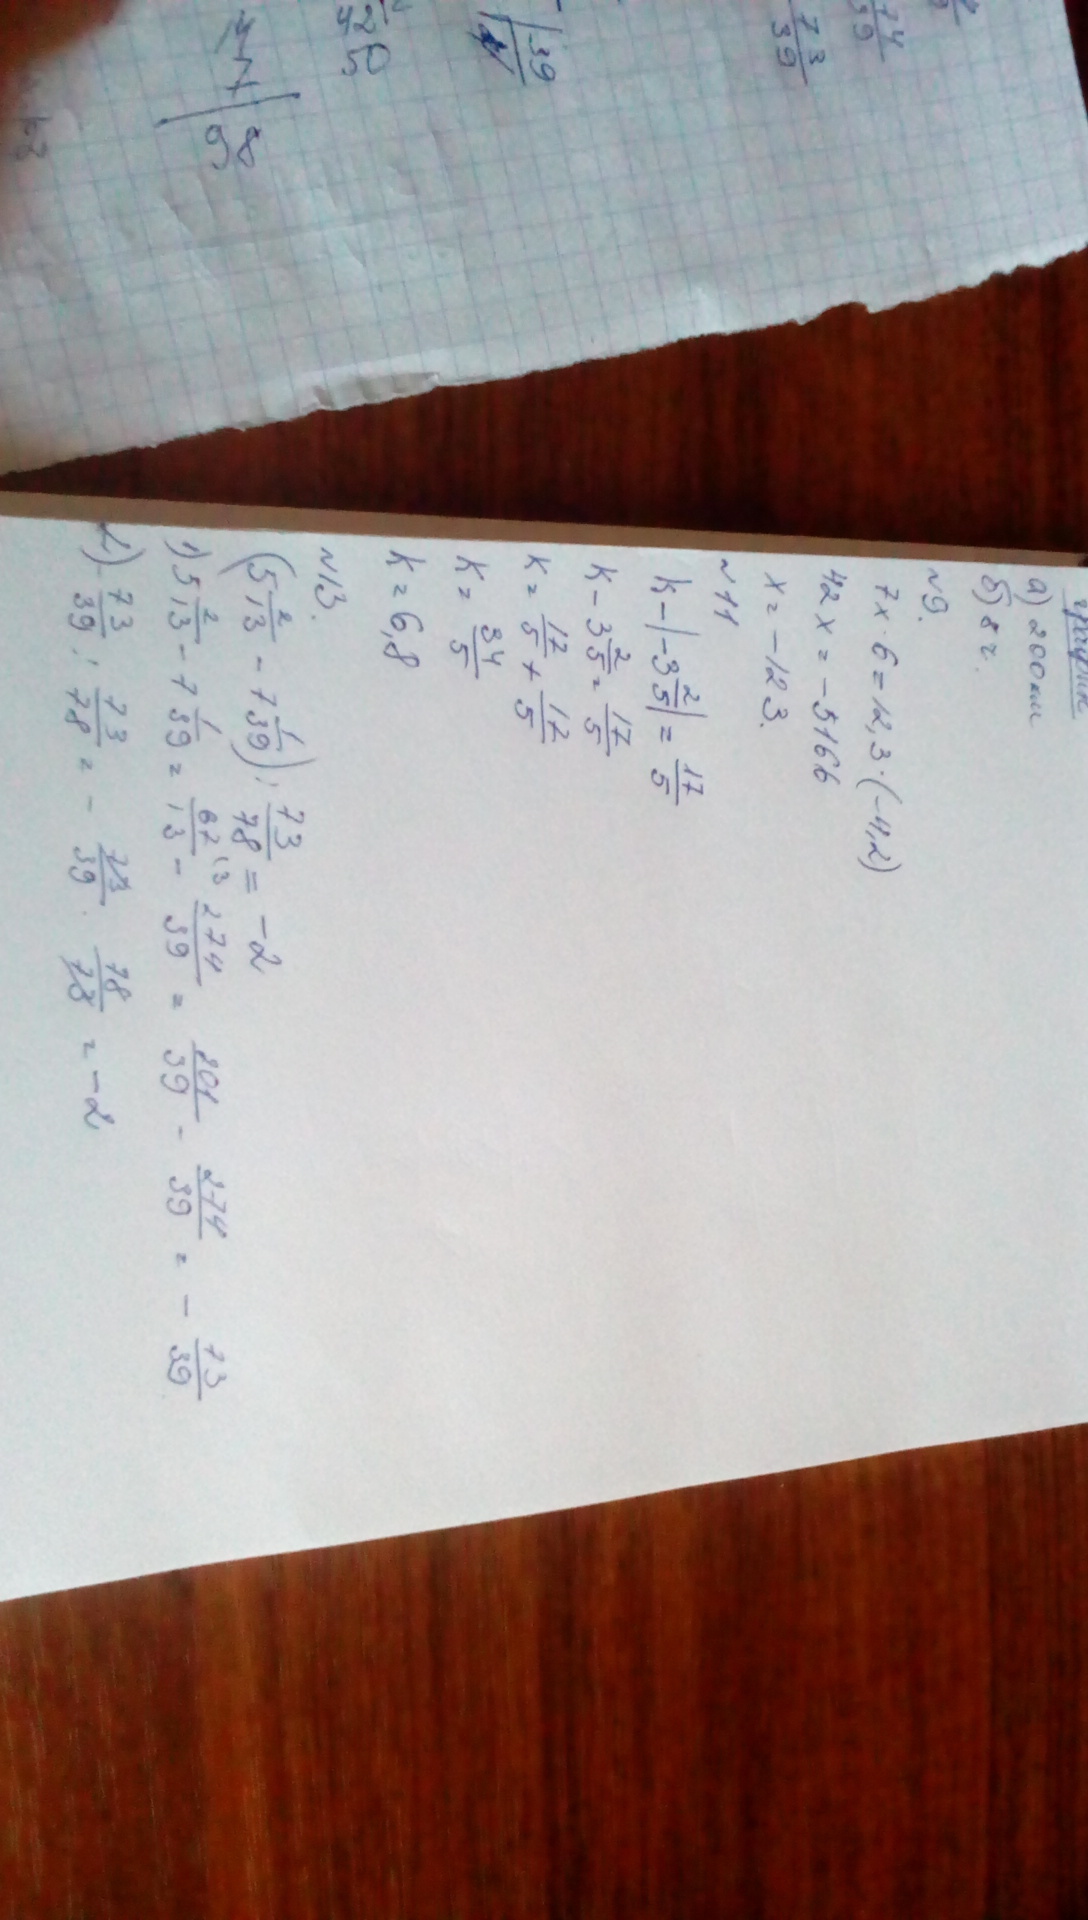 а) 200 км
б) 8 ч.
№9.
7x · 6 = 12,3 · (-4,2)
42x = -5166
x = -123.
№11
k - |-3 2/5| = 17/5
k - 3 2/5 = 17/5
k = 17/5 + 17/5
k = 34/5
k = 6,8
№13.
(5 2/13 - 7 1/39) : 73/78 = -2
1) 5 2/13 - 7 1/39 = 67/13 - 274/39 = 201/39 - 274/39 = - 73/39
2) - 73/39 : 73/78 = - 73/39 · 78/73 = -2
74/39
73/39
39
42
50
98